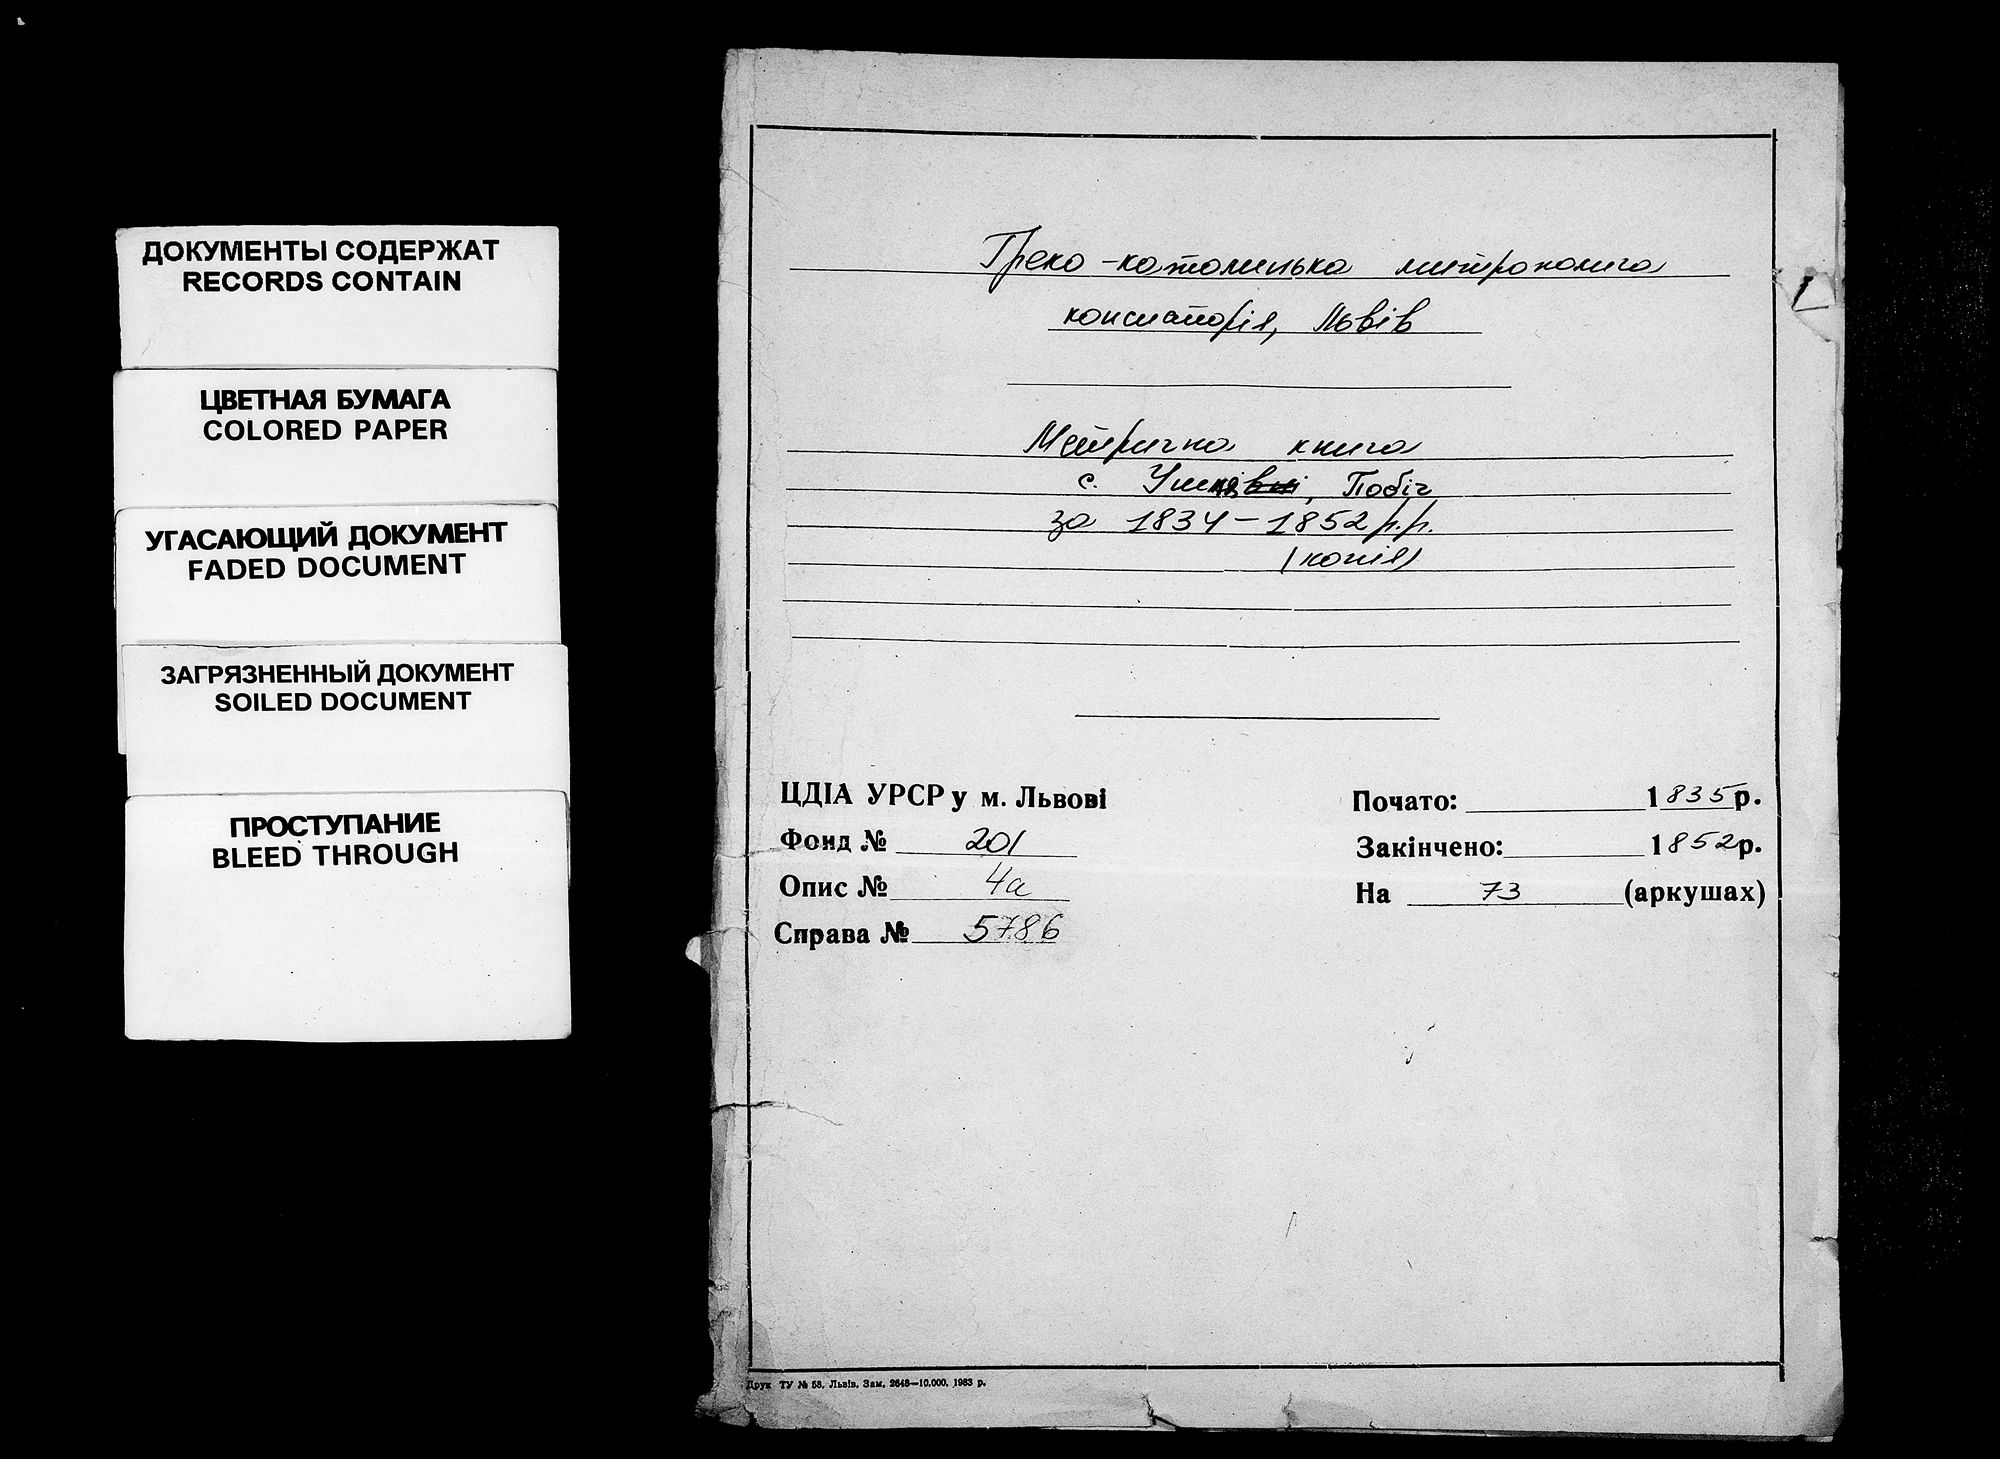 ДОКУМЕНТЫ СОДЕРЖАТ
RECORDS CONTAIN
ЦВЕТНАЯ БУМАГА
COLORED PAPER
УГАСАЮЩИЙ ДОКУМЕНТ
FADED DOCUMENT
ЗАГРЯЗНЕННЫЙ ДОКУМЕНТ
SOILED DOCUMENT
ПРОСТУПАНИЕ
BLEED THROUGH
Греко-католицька митрополича
консисторія, Львів
Метрична книга
с. Побіч
за 1834-1852 р.р.
(копія)
ЦДІА УРСР у м. Львові
Фонд № 201
Опис № 4а
Справа № 5786
Почато: 1835 р.
Закінчено: 1852 р.
На 73 (аркушах)
Друк ТУ № 58. Львів. Зам. 2648—10.000. 1983 р.